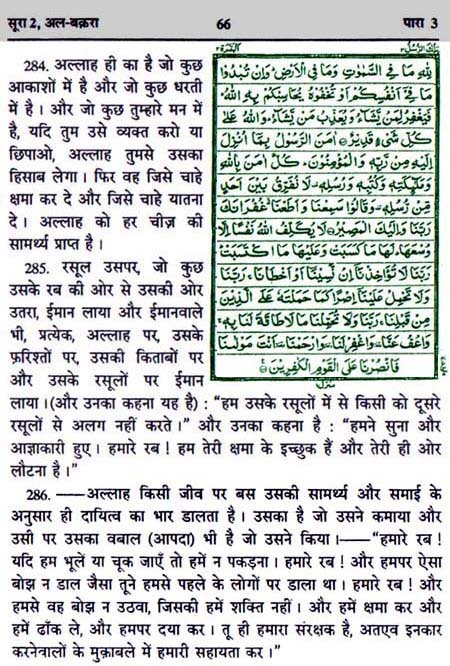 सूरा 2, अल-बक़रा
66
पारा 3
تِلْكَ الرُّسُلُ ٣
الْبَقَرَة ٢
284. अल्लाह ही का है जो कुछ
आकाशों में है और जो कुछ धरती
में है। और जो कुछ तुम्हारे मन में
है, यदि तुम उसे व्यक्त करो या
छिपाओ, अल्लाह तुमसे उसका
हिसाब लेगा। फिर वह जिसे चाहे
क्षमा कर दे और जिसे चाहे यातना
दे। अल्लाह को हर चीज़ की
सामर्थ्य प्राप्त है।
285. रसूल उसपर, जो कुछ
उसके रब की ओर से उसकी ओर
उतरा, ईमान लाया और ईमानवाले
भी, प्रत्येक, अल्लाह पर, उसके
फ़रिश्तों पर, उसकी किताबों पर
और उसके रसूलों पर ईमान
لِلّٰهِ مَا فِي السَّمٰوٰتِ وَمَا فِي الْاَرْضِ وَاِنْ تُبْدُوْا
مَا فِيْٓ اَنْفُسِكُمْ اَوْ تُخْفُوْهُ يُحَاسِبْكُمْ بِهِ اللّٰهُ
فَيَغْفِرُ لِمَنْ يَّشَآءُ وَيُعَذِّبُ مَنْ يَّشَآءُ وَاللّٰهُ عَلٰى
كُلِّ شَيْءٍ قَدِيْرٌ اٰمَنَ الرَّسُوْلُ بِمَآ اُنْزِلَ
اِلَيْهِ مِنْ رَّبِّهٖ وَالْمُؤْمِنُوْنَ كُلٌّ اٰمَنَ بِاللّٰهِ
وَمَلٰٓئِكَتِهٖ وَكُتُبِهٖ وَرُسُلِهٖ لَا نُفَرِّقُ بَيْنَ اَحَدٍ
مِّنْ رُّسُلِهٖ وَقَالُوْا سَمِعْنَا وَاَطَعْنَا غُفْرَانَكَ
رَبَّنَا وَاِلَيْكَ الْمَصِيْرُ لَا يُكَلِّفُ اللّٰهُ نَفْسًا اِلَّا
وُسْعَهَا لَهَا مَا كَسَبَتْ وَعَلَيْهَا مَا اكْتَسَبَتْ
رَبَّنَا لَا تُؤَاخِذْنَآ اِنْ نَّسِيْنَآ اَوْ اَخْطَاْنَا رَبَّنَا
وَلَا تَحْمِلْ عَلَيْنَآ اِصْرًا كَمَا حَمَلْتَهٗ عَلَى الَّذِيْنَ
مِنْ قَبْلِنَا رَبَّنَا وَلَا تُحَمِّلْنَا مَا لَا طَاقَةَ لَنَا بِهٖ
وَاعْفُ عَنَّا وَاغْفِرْ لَنَا وَارْحَمْنَا اَنْتَ مَوْلٰىنَا
فَانْصُرْنَا عَلَى الْقَوْمِ الْكٰفِرِيْنَ
منزل
लाया। (और उनका कहना यह है) : “हम उसके रसूलों में से किसी को दूसरे
रसूलों से अलग नहीं करते।” और उनका कहना है : “हमने सुना और
आज्ञाकारी हुए। हमारे रब ! हम तेरी क्षमा के इच्छुक हैं और तेरी ही ओर
लौटना है।”
286. ——अल्लाह किसी जीव पर बस उसकी सामर्थ्य और समाई के
अनुसार ही दायित्व का भार डालता है। उसका है जो उसने कमाया और
उसी पर उसका वबाल (आपदा) भी है जो उसने किया।——“हमारे रब !
यदि हम भूलें या चूक जाएँ तो हमें न पकड़ना। हमारे रब ! और हमपर ऐसा
बोझ न डाल जैसा तूने हमसे पहले के लोगों पर डाला था। हमारे रब ! और
हमसे वह बोझ न उठवा, जिसकी हमें शक्ति नहीं। और हमें क्षमा कर और
हमें ढाँक ले, और हमपर दया कर। तू ही हमारा संरक्षक है, अतएव इनकार
करनेवालों के मुक़ाबले में हमारी सहायता कर।”